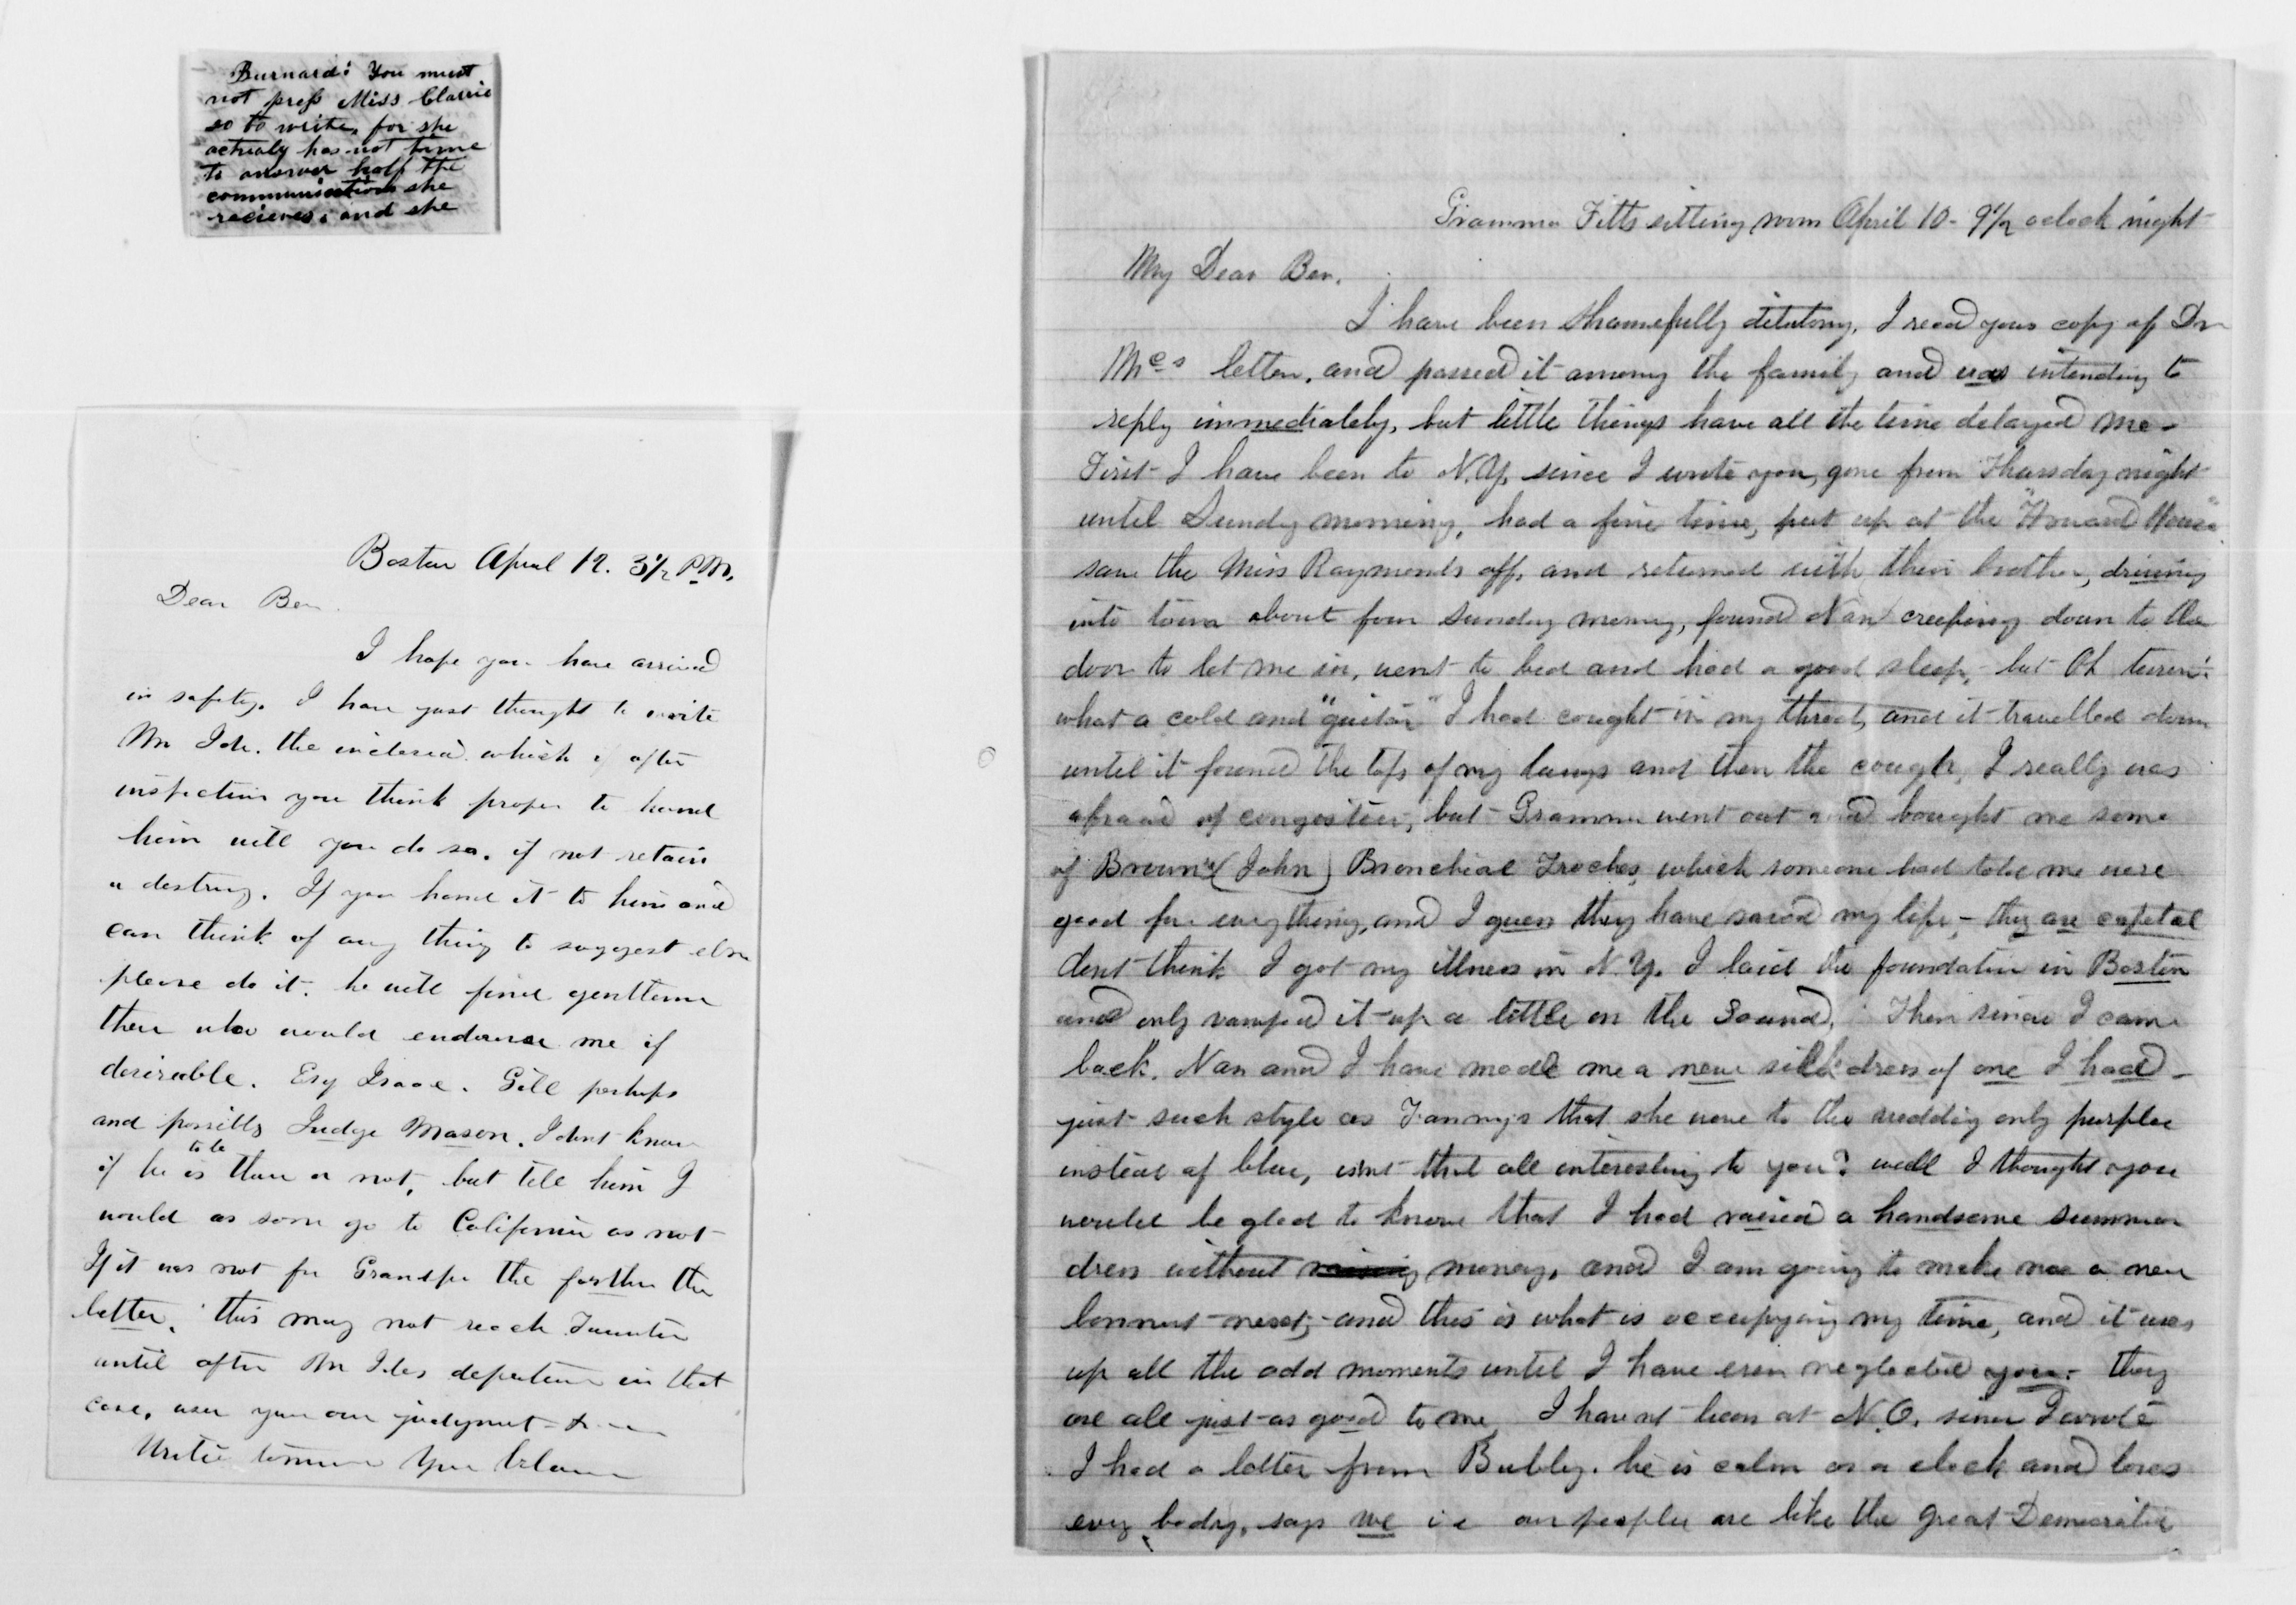 Burnard: You must
not press Miss Clarrie
so to write, for she
actualy has not time
to answer half the
communications she
recieves: and she
Boston April 12. 3 1/2 P.M.
Dear Ben.
I hope you have arrived
in safety. I have just thought to write
Mr Ide. the inclosed. which if after
inspection you think proper to hand
him will you do so. if not retain
or destroy. If you hand it to him and
can think of any thing to suggest else
please do it. he will find gentlemen
there who would endorse me if
desireable. Esq Isaac. Gill perhaps
and possibly Judge Mason. I dont know
if he is to be there or not, but tell him I
would as soon go to California as not
If it was not for Grandpa the farther the
better. this may not reach Taunton
until after Mr Ides departure in that
case, use your own judgment
Write
Gramma Fitts sitting room April 10 - 9 1/2 oclock night
My Dear Ben.
I have been shamefully dilatory. I read your copy of Dr
Mcs letter. and passed it among the family and was intending to
reply immediately, but little things have all the time delayed me -
First I have been to N.Y. since I wrote you, gone from Thursday night
until Sundy morning, had a fine time, put up at the "Howard House"
saw the Miss Raymonds off, and returned with their brother, driving
into town about four Sundy morning, found Nan creeping down to the
door to let me in, went to bed and had a good sleep, but Oh
what a cold and "guitar" I had caught in my throat, and it travelled down
until it found the tops of my lungs and then the cough, I really was
afraid of congestion, but Gramma went out and bought me some
of Brown's (John) Bronchial Troches, which someone had told me were
good for everything, and I guess they have saved my life, - they are capital
dont think I got my illness in N.Y. I laid the foundation in Boston
and only vamped it up a little on the Sound. Then since I came
back. Nan and I have made me a new silk dress of one I had -
just such style as Fannys that she wore to the wedding only purple
instead of blue, isnt that all interesting to you? well I thought you
would be glad to know that I had raised a handsome summer
dress without raising money, and I am going to make me a new
bonnet next, - and this is what is occupying my time, and it uses
up all the odd moments until I have even neglected you - they
are all just as good to me I havent been at N.O. since I wrote
I had a letter from Bubby. he is calm as a clock and loves
every body, says we i e our peoples are like the great Democratic